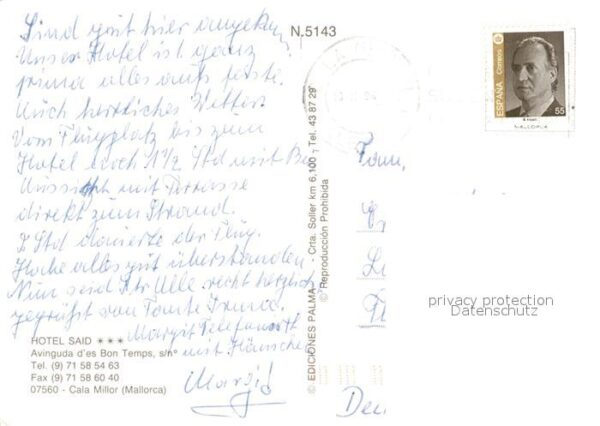 Sind gut hier angekom
Unser Hotel ist ganz
prima alles aufs feste.
Auch herrliches Wetter.
Vom Flugplatz bis zum
Hotel noch 1 1/2 Std mit Bus
Aussicht mit Terrasse
direkt zum Strand.
2 Std dauerte der Flug.
Habe alles gut überstanden
Nun seid Ihr Alle recht herzlich
gegrüßt von Tante Irma.
Margit Telefoniert
mit Hänschen
Margit
HOTEL SAID ***
Avinguda d'es Bon Temps, s/nº
Tel. (9) 71 58 54 63
Fax (9) 71 58 60 40
07560 - Cala Millor (Mallorca)
N.5143
© EDICIONES PALMA - Crta. Soller km 6,100 - Tel. 43 87 29
© Reproducción Prohibida
Correos
ESPAÑA
55
Fam.
privacy protection
Datenschutz